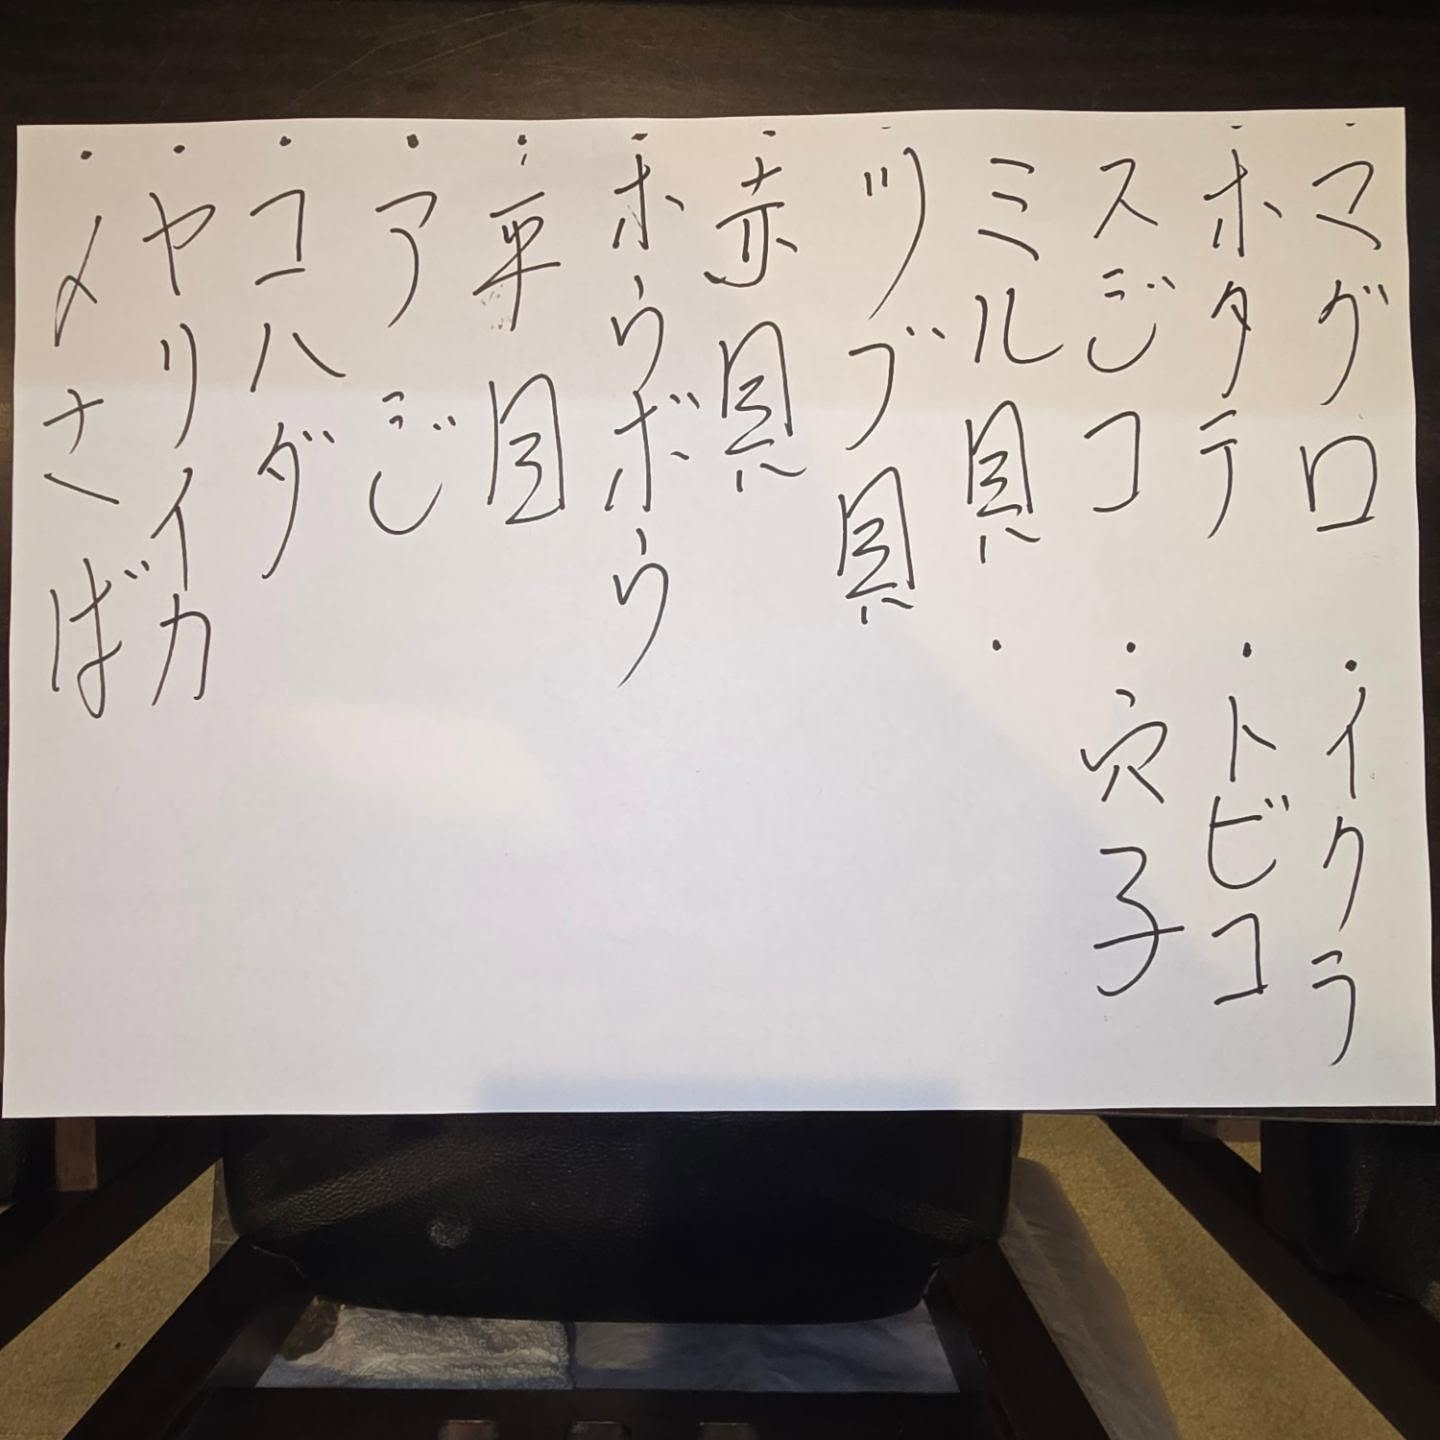 ・マグロ
・ホタテ
・スジコ
・ミル貝
・ツブ貝
・赤貝
・ホウボウ
・平目
・アジ
・コハダ
・ヤリイカ
・〆さば
・イクラ
・トビコ
・穴子
・